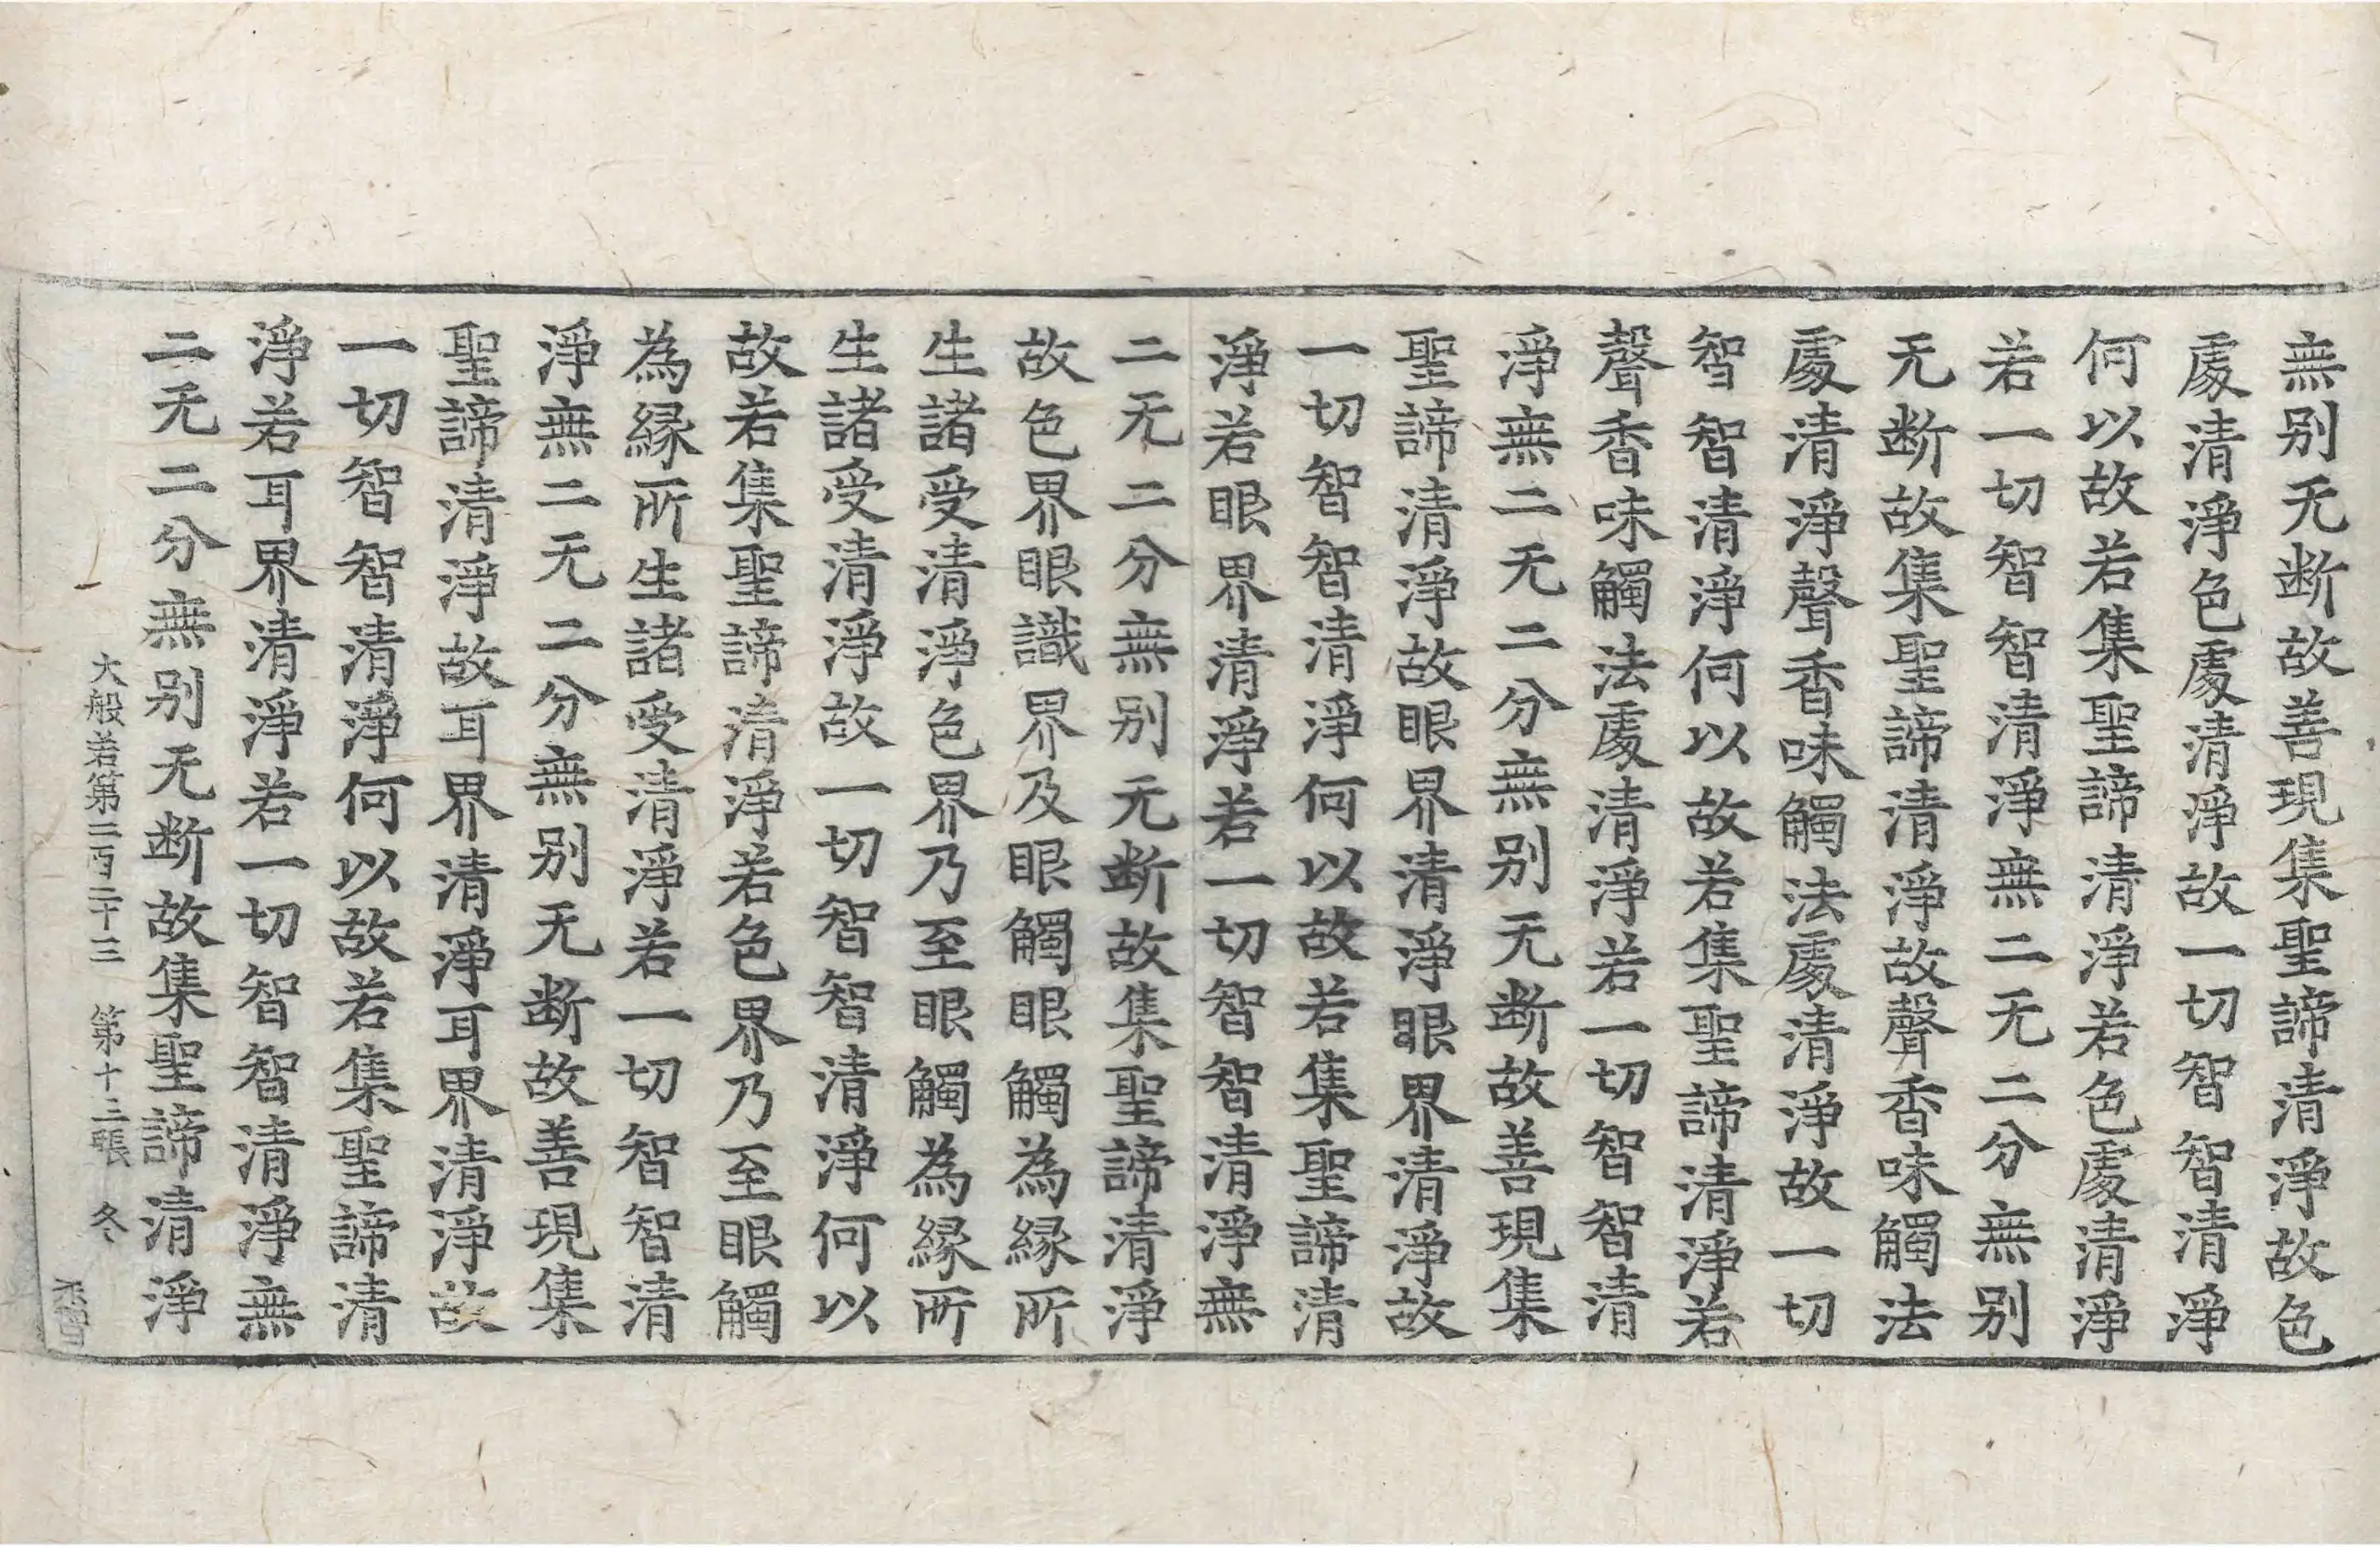 無别无断故善現集聖諦清淨故色
處清淨色處清淨故一切智智清淨
何以故若集聖諦清淨若色處清淨
若一切智智清淨無二无二分無别
无断故集聖諦清淨故聲香味觸法
處清淨聲香味觸法處清淨故一切
智智清淨何以故若集聖諦清淨若
聲香味觸法處清淨若一切智智清
淨無二无二分無别无断故善現集
聖諦清淨故眼界清淨眼界清淨故
一切智智清淨何以故若集聖諦清
淨若眼界清淨若一切智智清淨無
二无二分無别无断故集聖諦清淨
故色界眼識界及眼觸眼觸為縁所
生諸受清淨色界乃至眼觸為縁所
生諸受清淨故一切智智清淨何以
故若集聖諦清淨若色界乃至眼觸
為縁所生諸受清淨若一切智智清
淨無二无二分無别无断故善現集
聖諦清淨故耳界清淨耳界清淨故
一切智智清淨何以故若集聖諦清
淨若耳界清淨若一切智智清淨無
二无二分無别无断故集聖諦清淨
大般若第二百二十三 第十三張 冬